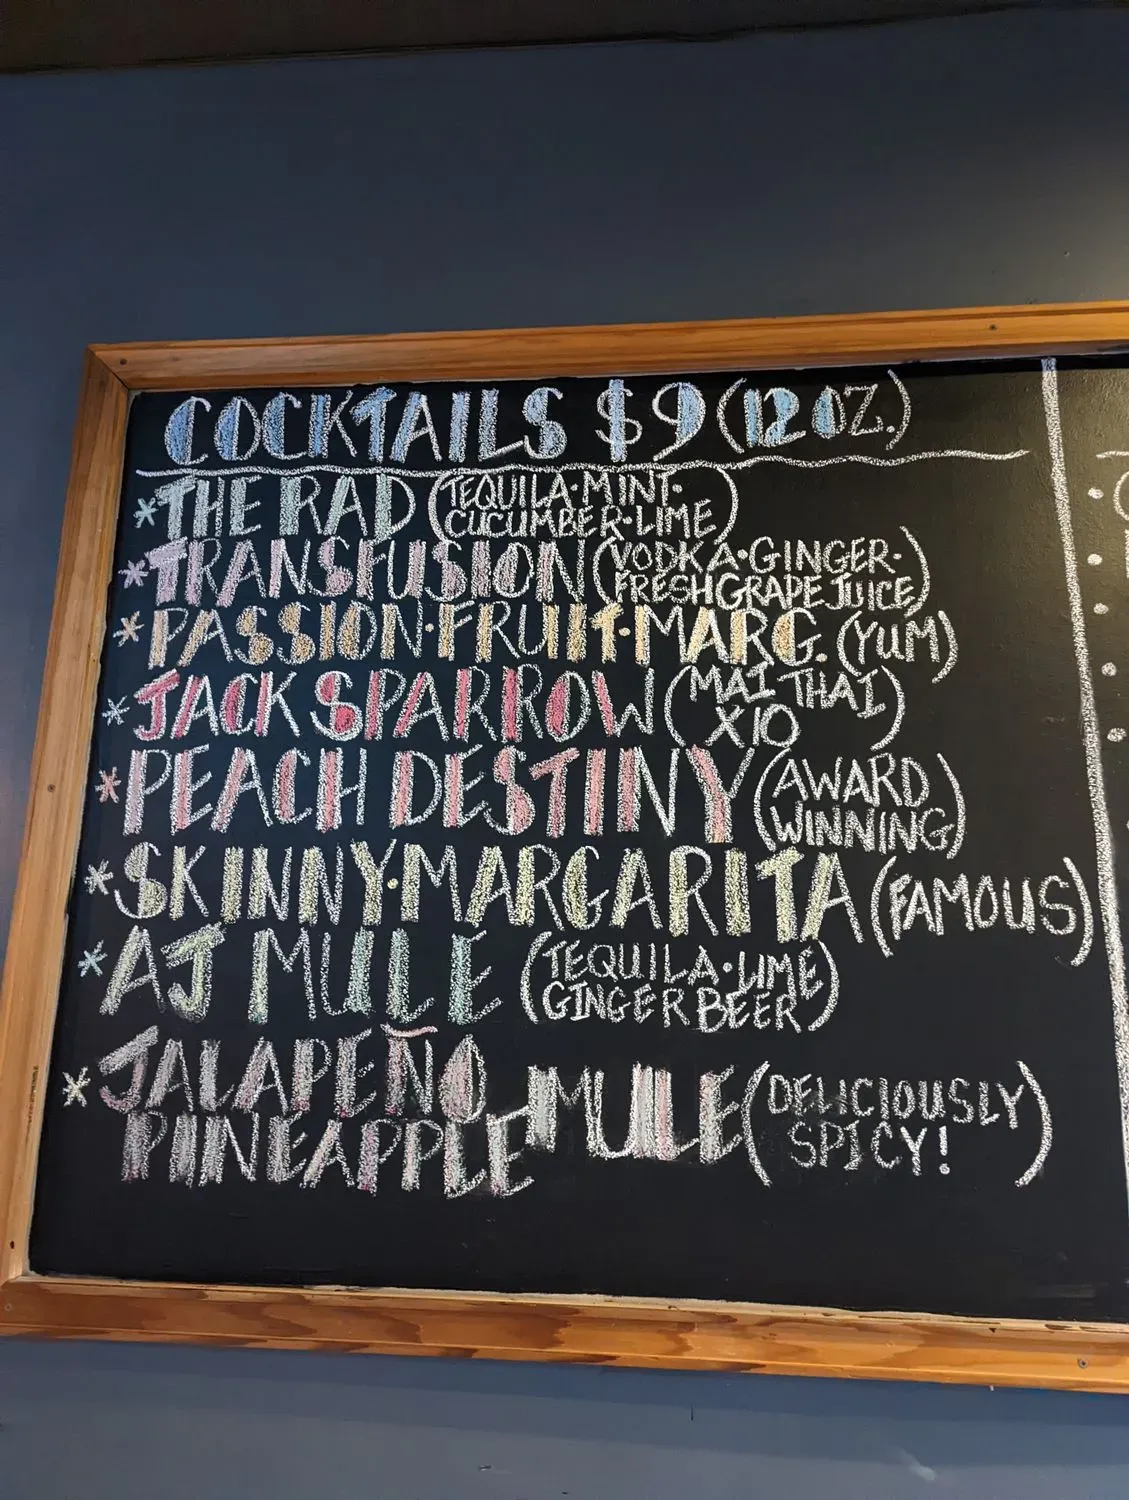 COCKTAILS $9 (12 OZ.)
* THE RAD (TEQUILA·MINT·
CUCUMBER·LIME)
* TRANSFUSION (VODKA·GINGER·
FRESH GRAPE JUICE)
* PASSION·FRUIT·MARG. (YUM)
* JACK SPARROW (MAI THAI
X10)
* PEACH DESTINY (AWARD
WINNING)
* SKINNY·MARGARITA (FAMOUS)
* AJ MULE (TEQUILA·LIME
GINGER BEER)
* JALAPEÑO
PINEAPPLE MULE (DELICIOUSLY
SPICY!)